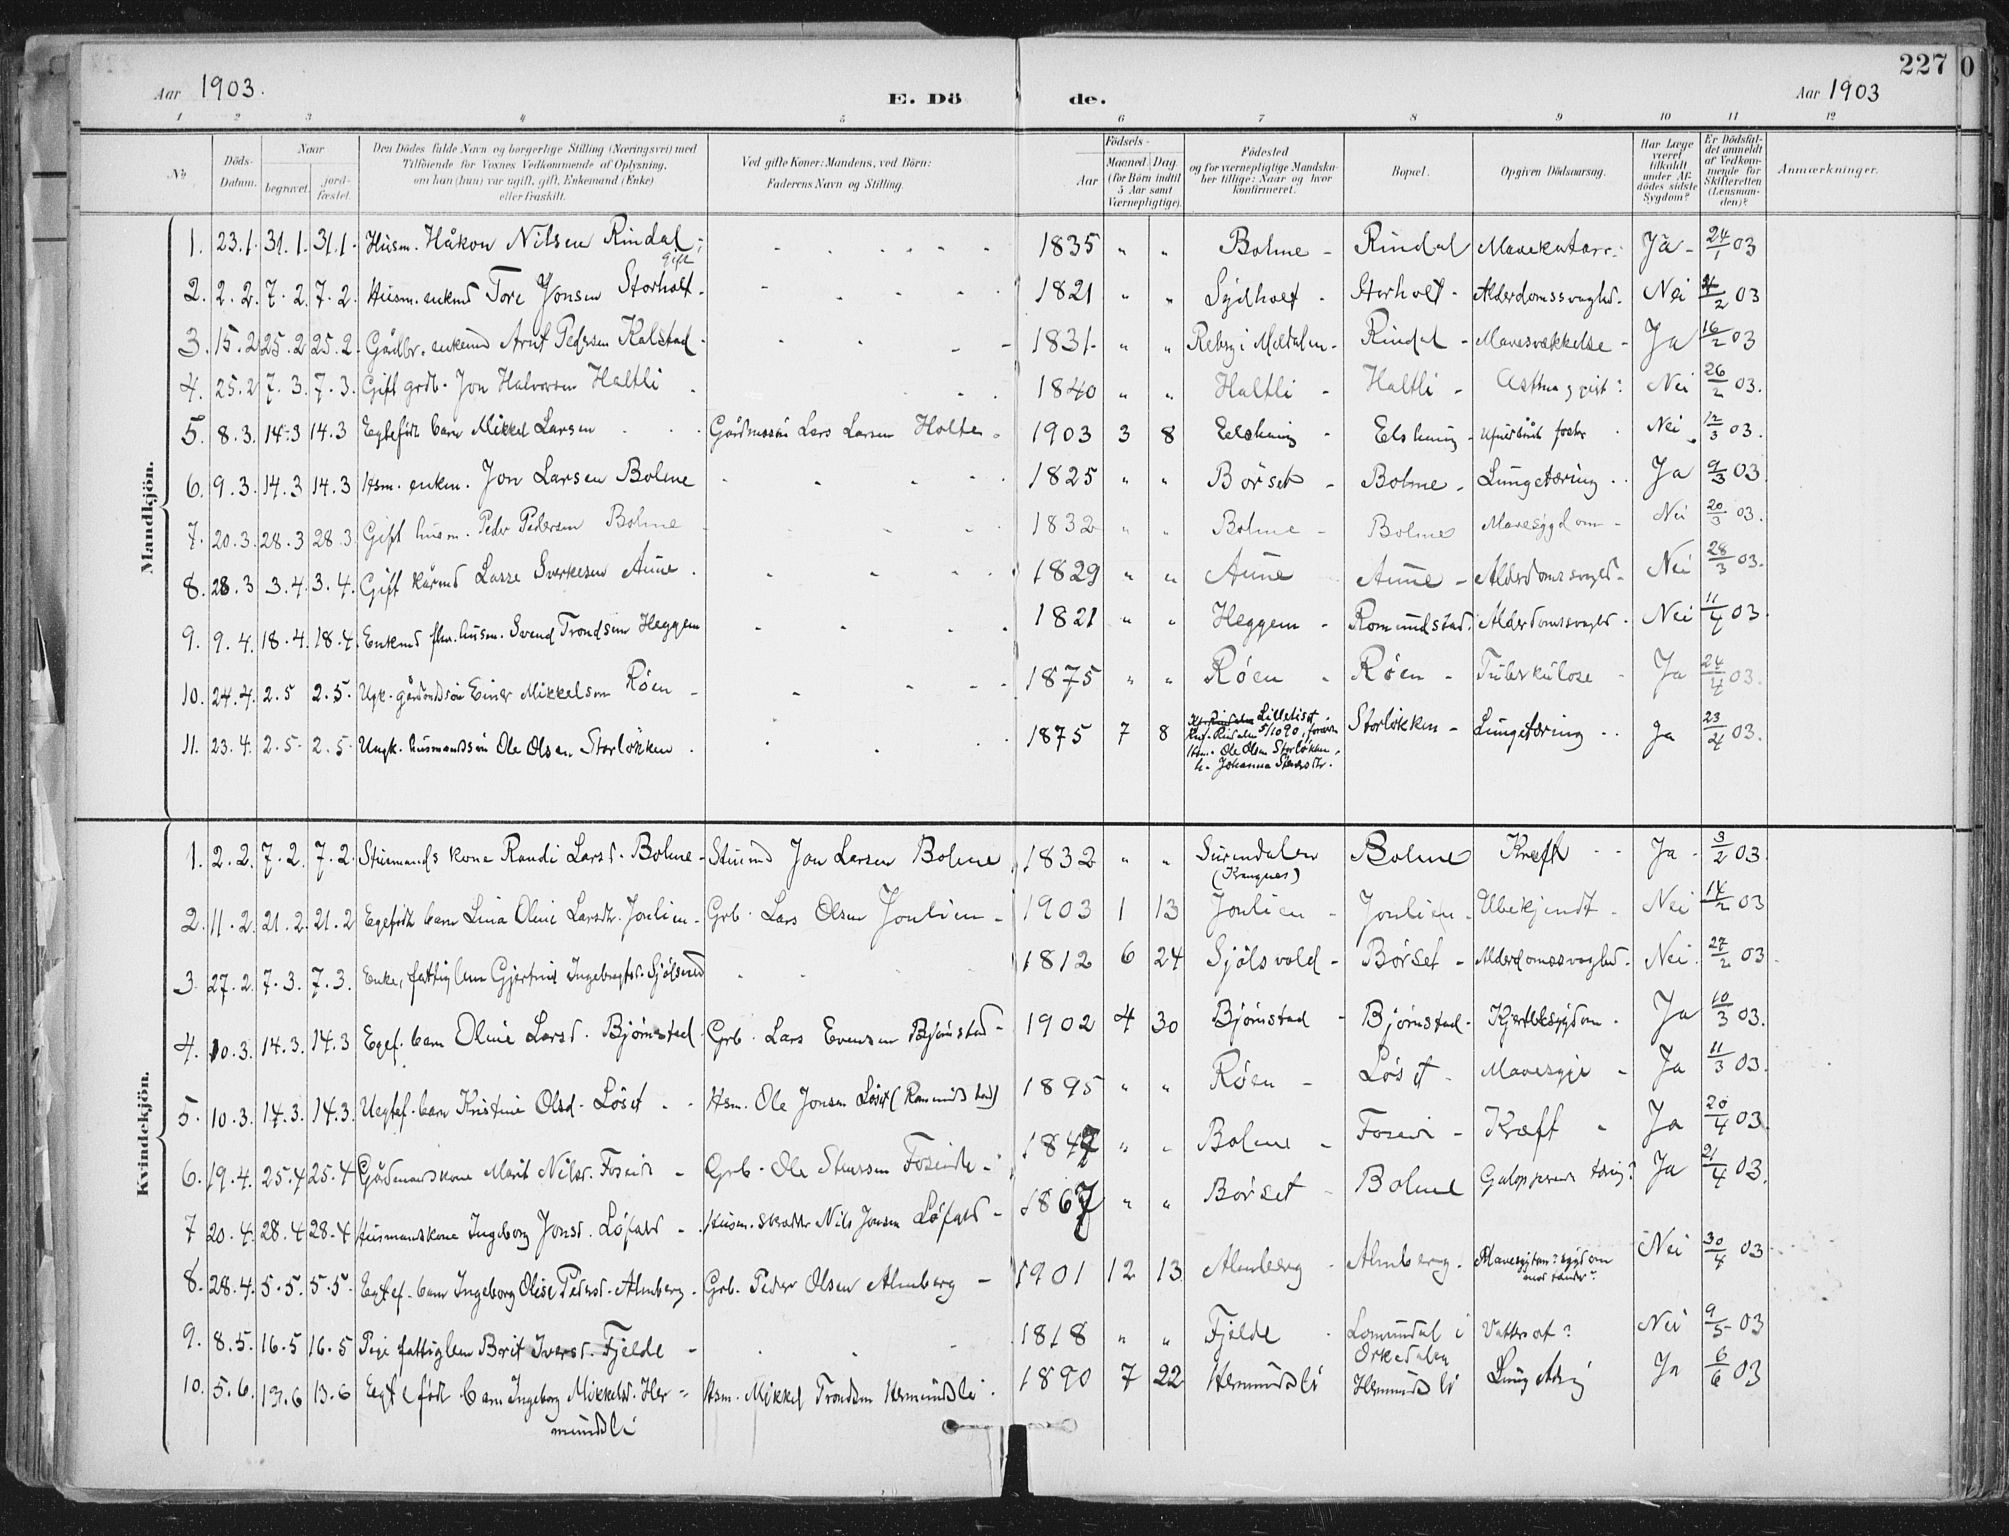 227
Aar 1903.
E. Dö de.
Aar 1903
1 2 3 4 5 6 7 8 9 10 11 12
No
Döds-Datum.
Naar
begravet. jord-fæstet.
Den Dödes fulde Navn og borgerlige Stilling (Næringsvei) med
Tilføiende for Voxnes Vedkommende af Oplysning,
om han (hun) var ugift, gift, Enkemand (Enke)
eller fraskilt.
Ved gifte Koner: Mandens, ved Börn:
Faderens Navn og Stilling.
Födsels-
Aar Maaned Dag.
(for Börn indtil
5 Aar samt
Værnepligtige).
Födested
og for værnepligtige Mandska-
ber tillige: Naar og hvor
konfirmeret.
Bopæl.
Opgiven Dödsaarsag.
Har Læge
været
tilkaldt
under Af-
dödes sidste
Sygdom?
Er Dödsfal-
det anmeldt
af Vedkom-
mende for
Skifteretten
(Lensman-
den)?
Anmærkninger.
Mandkjön.
1. 23.1. 31.1. 31.1. Husm. Håkon Nilsen Rindal gift 1835 " " Bolme - Rindal Mavekatarr. Ja - 24/1 03
2. 2.2. 7.2. 7.2. Husm. enkmd Tore Jonsen Storholt - 1821 " " Sydholt - Storholt - Alderdomssvaghed. Nei 4/2 03
3. 15.2 25.2 25.2. Gådbr. enkemd Arnt Pedersen Kalstad - 1831 - " " Rebsg i Meldalen - Rindal - Mavesvækkelse - Ja 16/2 03
4. 25.2 7.3. 7.3. Gift grdb. Jon Halvorsen Haltli 1840 " " Haltli - Haltli - Asthma, gigt? Nei 26/2 03.
5. 8.3. 14.3 14.3 Egtefødt barn Mikkel Larsen Gårdmssøn Lars Larsen Holte. 1903 3 8 Nei 12/3 03.
6. 9.3. 14.3 14.3 Hsm. enkm. Jon Larsen Bolme 1825 " " Børset - Bolme - Lungetæring. Ja 9/3 03.
7. 20.3. 28.3 28.3 Gift husm. Peder Pedersen Bolme 1832 " " Bolme - Bolme Mavesygdom - Nei 20/3 03.
8. 28.3 3.4. 3.4. Gift kårmd Lasse Sverkesen Aune. 1829 " " Aune Aune - Alderdomssvaghd. Nei 28/3 03.
9. 9.4. 18.4. 18.4. Enkmd fhv. husm. Svend Trondsen Heggem 1821 " " Heggem - Romundstad. Alderdomssvaghd. Nei 11/4 03.
10. 24.4. 2.5 2.5. Ugk. gårdmdssøn Einar Mikkelsen Røen - 1875 " " Røen - Røen - Tuberkulose Ja 24/4 03.
11. 23.4. 2.5. 2.5. Ungk. husmandssøn Ole Olsen Storløkken. 1875 7 8 Lillelist Knf. Rindalen 5/10 90, foræ. Hsm. Ole Olsen Storløkken. Storløkken - Lungetæring .. ja 23/4 03.
Kvindekjön.
1. 2.2. 7.2. 7.2. Stuemands kone Randi Larsd. Bolme - Stuemd Jon Larsen Bolme 1832 " " Surendalen (Krangnes) Bolme Kræft - - Ja - 3/2 03.
2. 11.2. 21.2. 21.2 Egefødt barn Lina Oline Larsdtr. Jonlien - Grb. Lars Olsen Jonlien - 1903 1 13 Jonlien - Jonlien - Ubekjendt - Nei 14/2 03
3. 27.2. 7.3. 7.3. Enke, fattiglem Gjertrud Ingebrigtsd. Sjølsvold 1812 6 24 Sjölsvold - Börset - Alderdomssvaghed. Nei. 27/2 03.
4. 10.3. 14.3. 14.3 Egef. barn Oline Larsd. Bjørnstad Grb. Lars Evensen Bjørnstad - 1902 4 30 Bjørnstad - Bjørnstad - Kjertelsygdom. Ja 10/3 03.
5. 10.3. 14.3. 14.3. Uegtef. barn Kristine Olsd. Løset . - Hsm. Ole Jonsen Løset (Romundstad) 1895 " " Røen - Løset - Mavesyge - Ja 11/3 03.
6. 19.4. 25.4 25.4 Gårdmandskone Marit Nilsd. Foseide - Grb. Ole Stensen Foseide - 1847 " " Bolme - Foseide - Kræft " Ja 20/4 03.
7 20.4. 28.4 28.4 Husmandskone Ingeborg Jonsd. Løfald - Husm. skrædder Nils Jonsen Løfald - 1867 " " Børset - Bolme Galopperende tæring? Ja 21/4 03.
8. 28.4. 5.5. 5.5. Egtef. barn Ingeborg Olise Pedersd. Almberg. Grb. Peder Olsen Almberg - 1901 12 13 Almberg - Almberg. Nei 30/4 03
9. 8.5. 16.5 16.5 Pige fattiglem Borit Iversd. Fjelde - 1818 " " Fjelde - Lomundal i Orkedalen Vattersot? Nei 9/5 03
10. 5.6. 13.6 13.6 Egtefødt barn Ingeborg Mikkelsd. Her- mundsli Hsm. Mikkel Trondsen Hermundsli. 1890 7 22 Hermundsli Hermundsli Lungetæring Ja 6/6 03